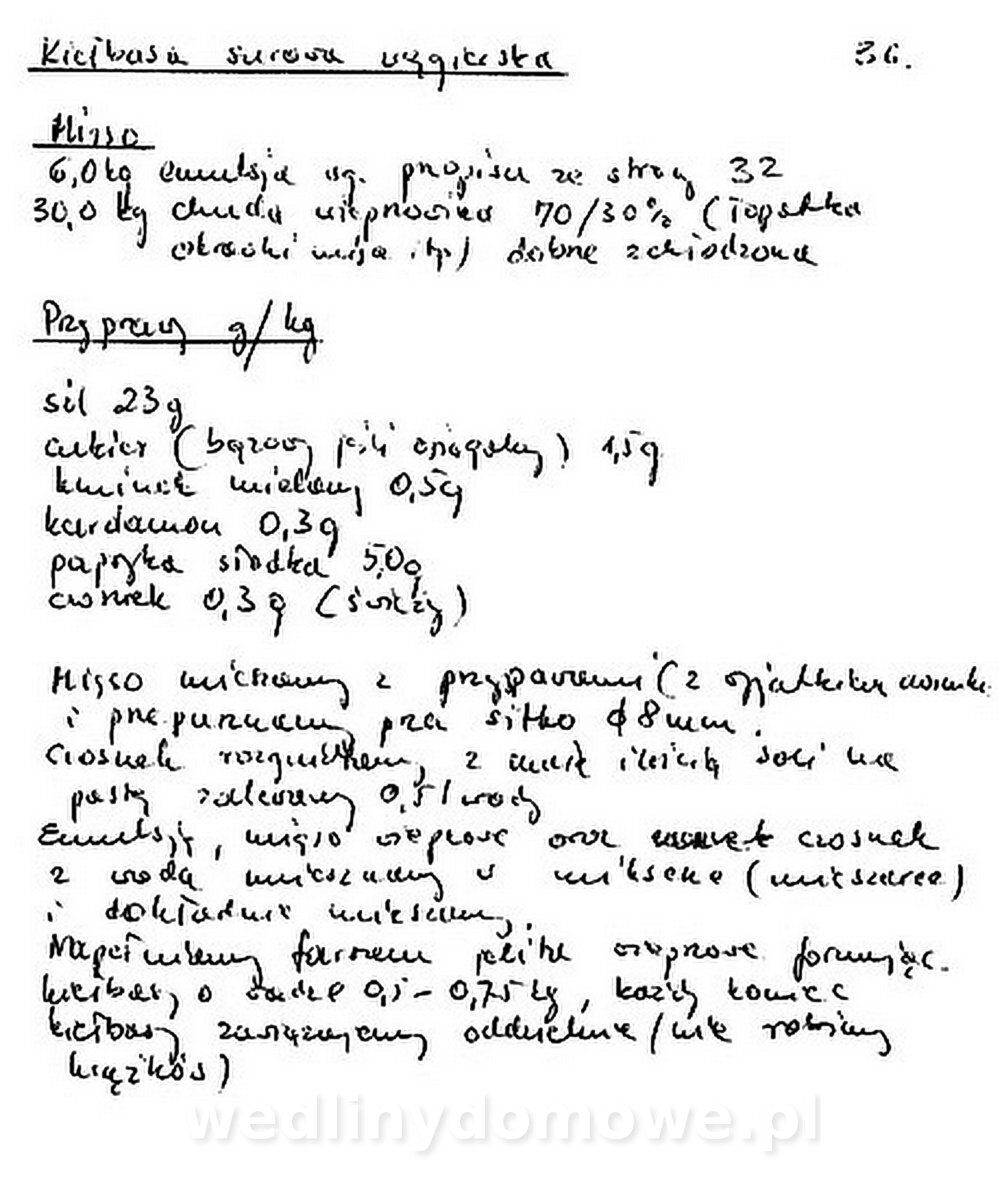 Kiełbasa surowa węgierska 36.
Mięso
6,0 kg emulsja wg. przepisu ze strony 32
30,0 kg chuda wieprzowina 70/30% (łopatka
okrawki mięsa itp) dobrze schłodzona
Przyprawy g/kg
sól 23g
cukier (brązowy jeśli osiągalny) 1,5g
kminek mielony 0,5g
kardamon 0,3g
papryka słodka 5,0g
czosnek 0,3g (świeży)
Mięso mieszamy z przyprawami (z wyjątkiem czosnku
i przepuszczamy przez sitko ϕ 8mm.
Czosnek rozgniatamy z małą ilością soli na
pastę zalewamy 0,5 l wody
Emulsję, mięso wieprzowe oraz czosnek
z wodą umieszczamy w mikserze (mieszarce)
i dokładnie mieszamy.
Napełniamy farszem jelita wieprzowe formując.
kiełbasy o wadze 0,5 - 0,75 kg, każdy koniec
kiełbasy zawiązujemy oddzielnie (nie robimy
krążków)
wedlinydomowe.pl